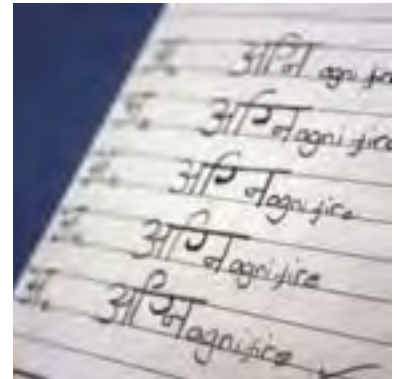 अ. अग्नि agni fire
अ. अग्नि agni fire
अ. अग्नि agni fire
अ. अग्नि agni fire
अ. अग्नि agni fire